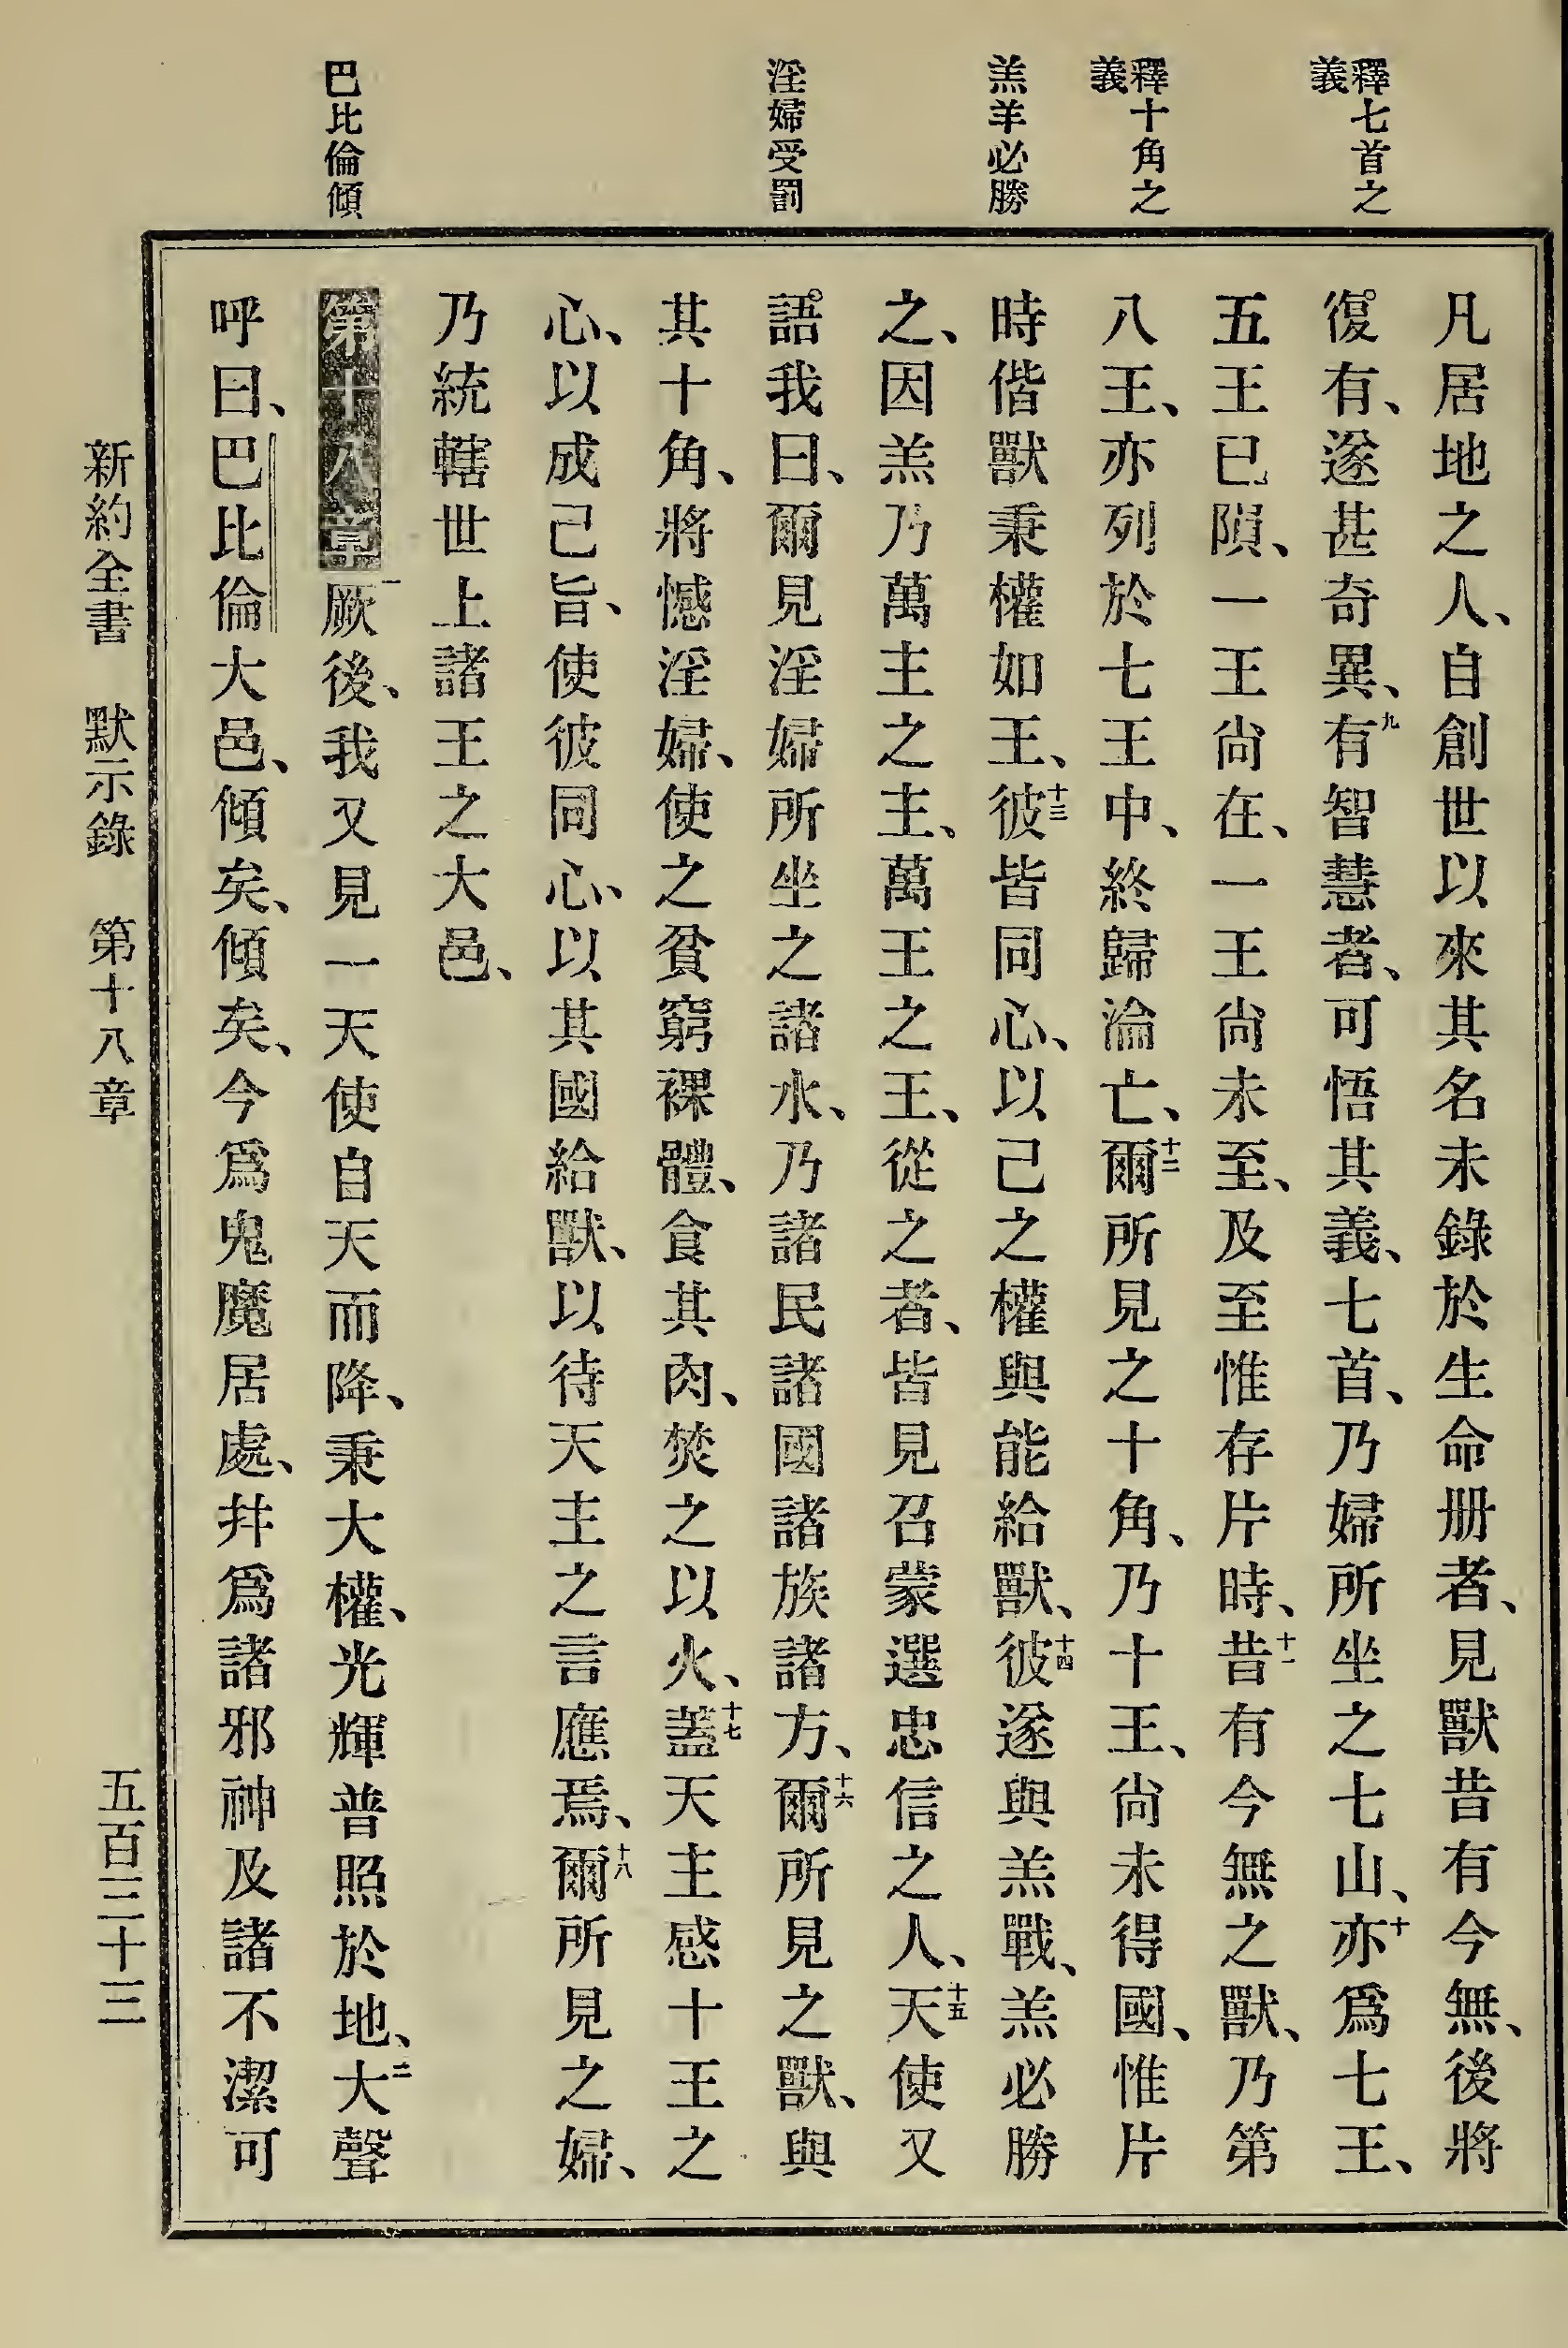 釋七首之
義
釋十角之
義
羔羊必勝
淫婦受罰
巴比倫傾
凡居地之人、自創世以來其名未錄於生命册者、見獸昔有今無、後將
復有、遂甚奇異、九有智慧者、可悟其義、七首、乃婦所坐之七山、十亦爲七王、
五王已隕、一王尙在、一王尙未至、及至惟存片時、十一昔有今無之獸、乃第
八王、亦列於七王中、終歸淪亡、十二爾所見之十角、乃十王、尙未得國、惟片
時偕獸秉權如王、十三彼皆同心、以己之權與能給獸、十四彼遂與羔戰、羔必勝
之、因羔乃萬主之主、萬王之王、從之者、皆見召蒙選忠信之人、十五天使又
語我曰、爾見淫婦所坐之諸水、乃諸民諸國諸族諸方、十六爾所見之獸、與
其十角、將憾淫婦、使之貧窮裸體、食其肉、焚之以火、十七蓋天主感十王之
心、以成己旨、使彼同心、以其國給獸、以待天主之言應焉、十八爾所見之婦、
乃統轄世上諸王之大邑、
第十八章一厥後、我又見一天使自天而降、秉大權、光輝普照於地、二大聲
呼曰、巴比倫大邑、傾矣、傾矣、今爲鬼魔居處、幷爲諸邪神及諸不潔可
新約全書 默示錄 第十八章 五百三十三